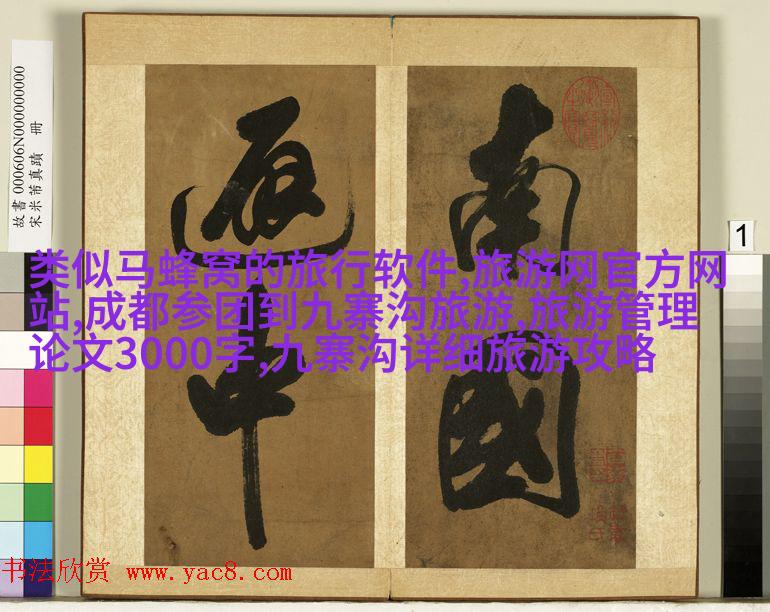 故書000606N000000000
宋米芾真蹟 冊
南
國
中
1
类似马蜂窝的旅行软件,旅游网官方网
站,成都参团到九寨沟旅游,旅游管理
论文3000字,九寨沟详细旅游攻略
书法欣赏 www.yac8.com